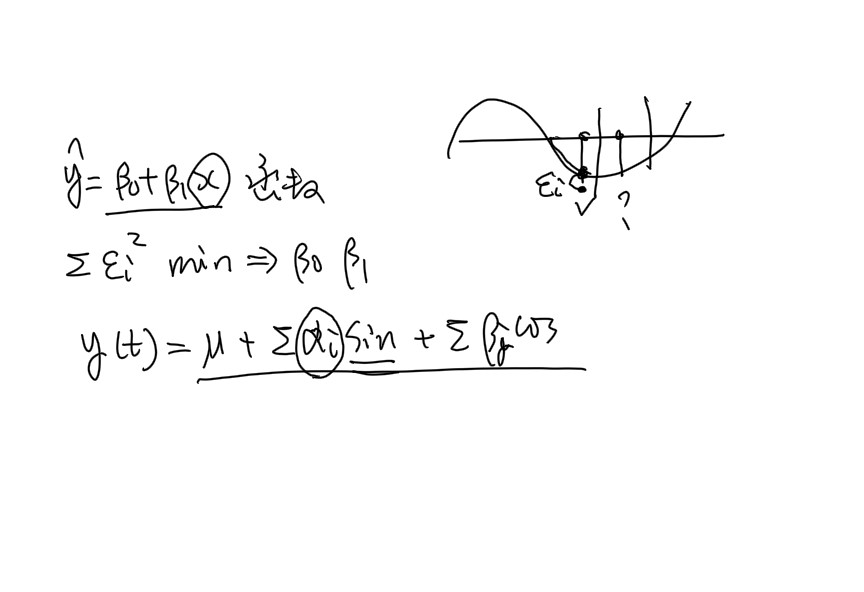 εi
?
ŷ = β0 + β1 x
Σ εi² min ⇒ β0 β1
y(t) = μ + Σ αi sin + Σ βj cos